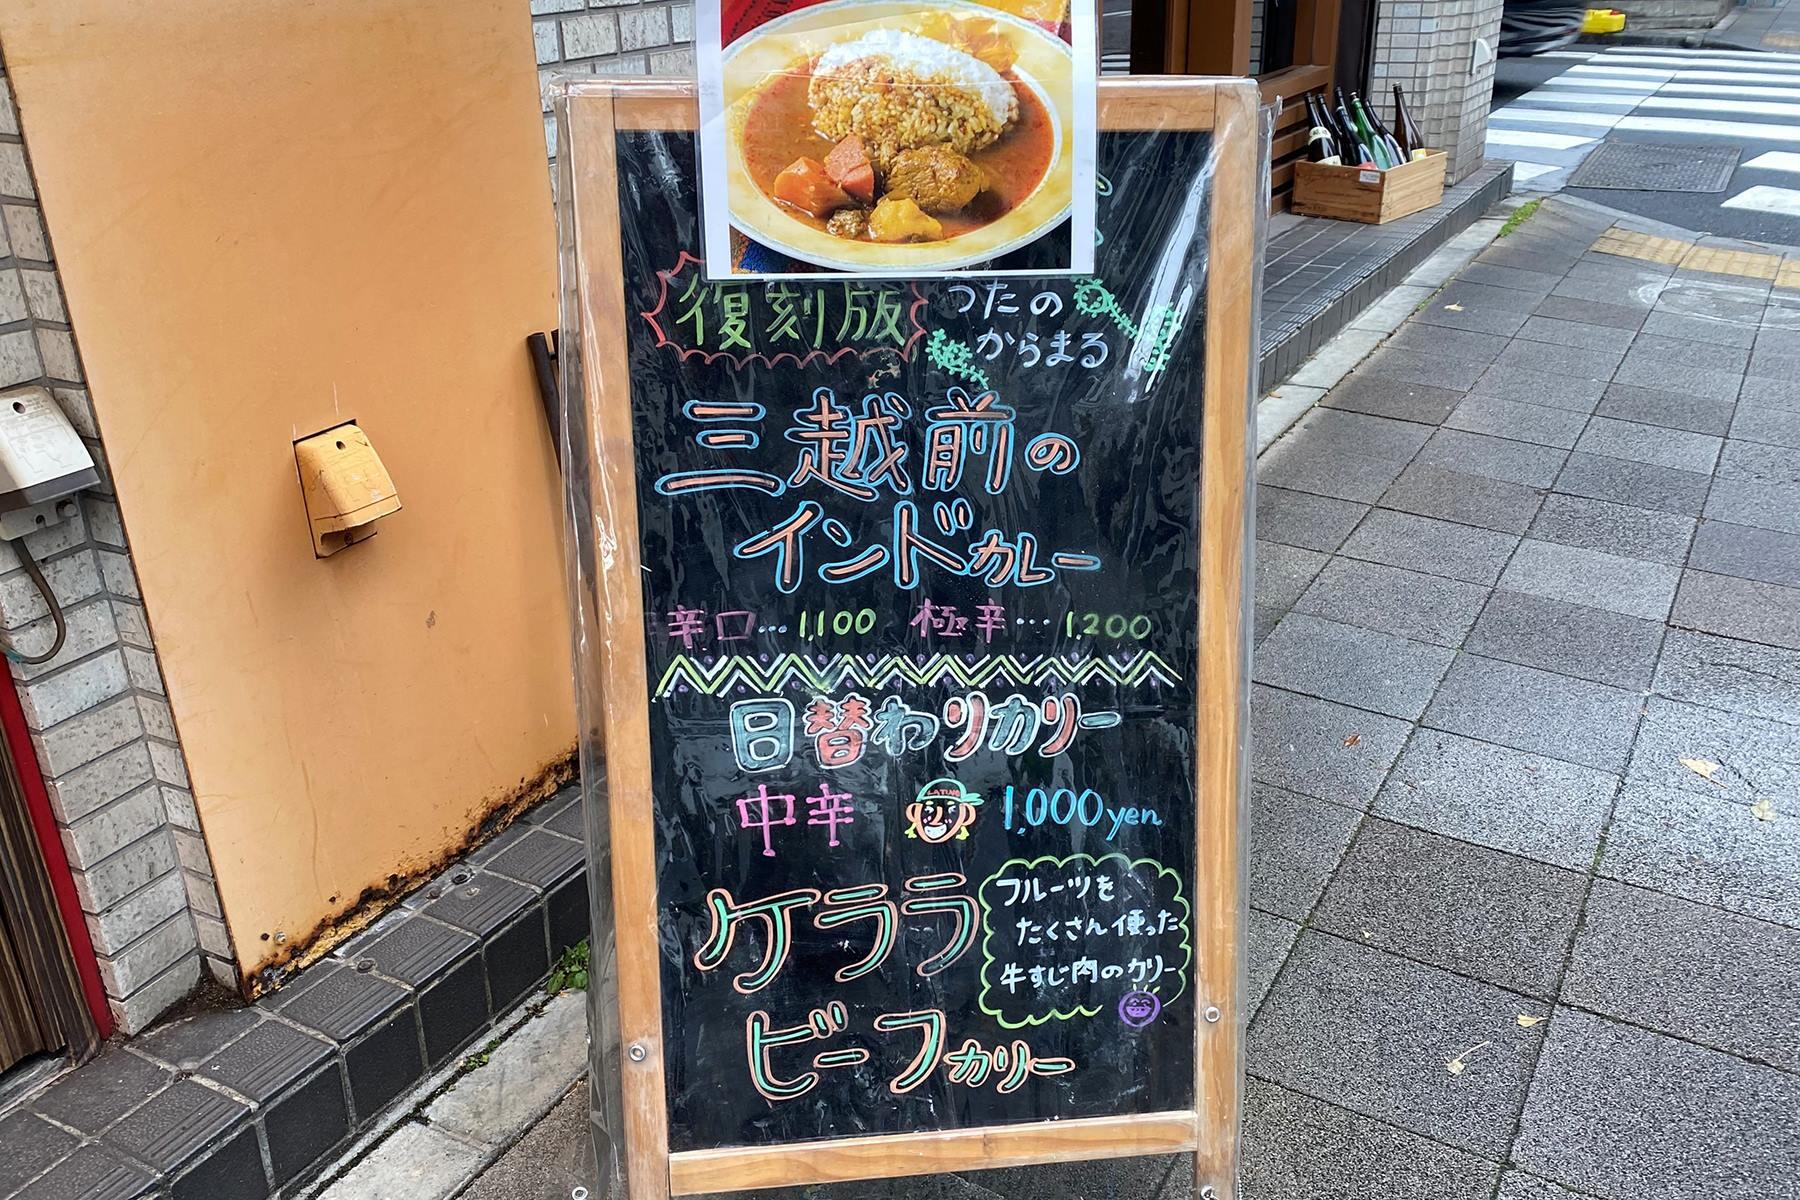 復刻版 つたの
からまる
三越前の
インドカレー
辛口…1,100 極辛…1,200
日替わりカリー
中辛 LATINO 1,000yen
ケララ
ビーフカリー
フルーツを
たくさん使った
牛すじ肉のカリー